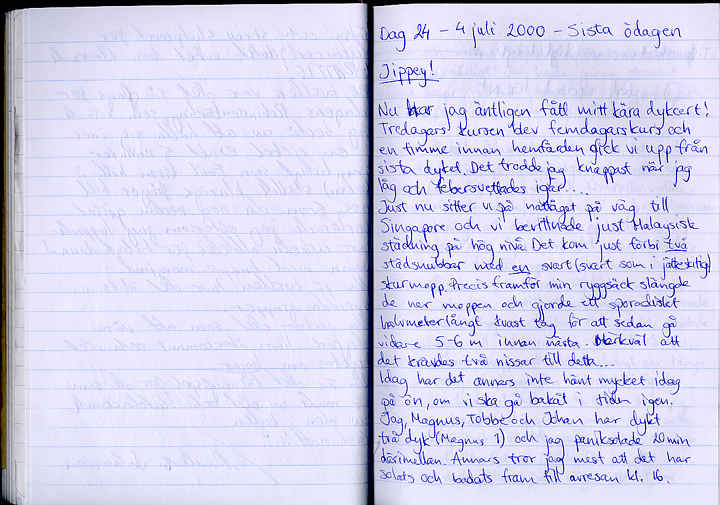 Dag 24 - 4 juli 2000 - Sista ödagen
Jippey!
Nu har jag äntligen fått mitt kära dykcert!
Tredagars kursen blev femdagarskurs och
en timme innan hemfärden gick vi upp från
sista dyket. Det trodde jag knappast när jag
låg och febersvettades igår...
Just nu sitter vi på nattåget på väg till
Singapore och vi bevittnade just Malaysisk
städning på hög nivå. Det kom just förbi två
städsnubbar med en svart (svart som i jätteskitig)
skurmopp. Precis framför min ryggsäck slängde
de ner moppen och gjorde ett sporadiskt
halvmeterlångt kvast tag för att sedan gå
vidare 5-6 m innan nästa. Märkväl att
det krävdes två nissar till detta...
Idag har det annars inte hänt mycket idag
på ön, om vi ska gå bakåt i tiden igen.
Jag, Magnus, Tobbe och Johan har dykt
två dyk (Magnus 1) och jag paniksolade 20 min
däremellan. Annars tror jag mest att det har
solats och badats fram till avresan kl. 16.